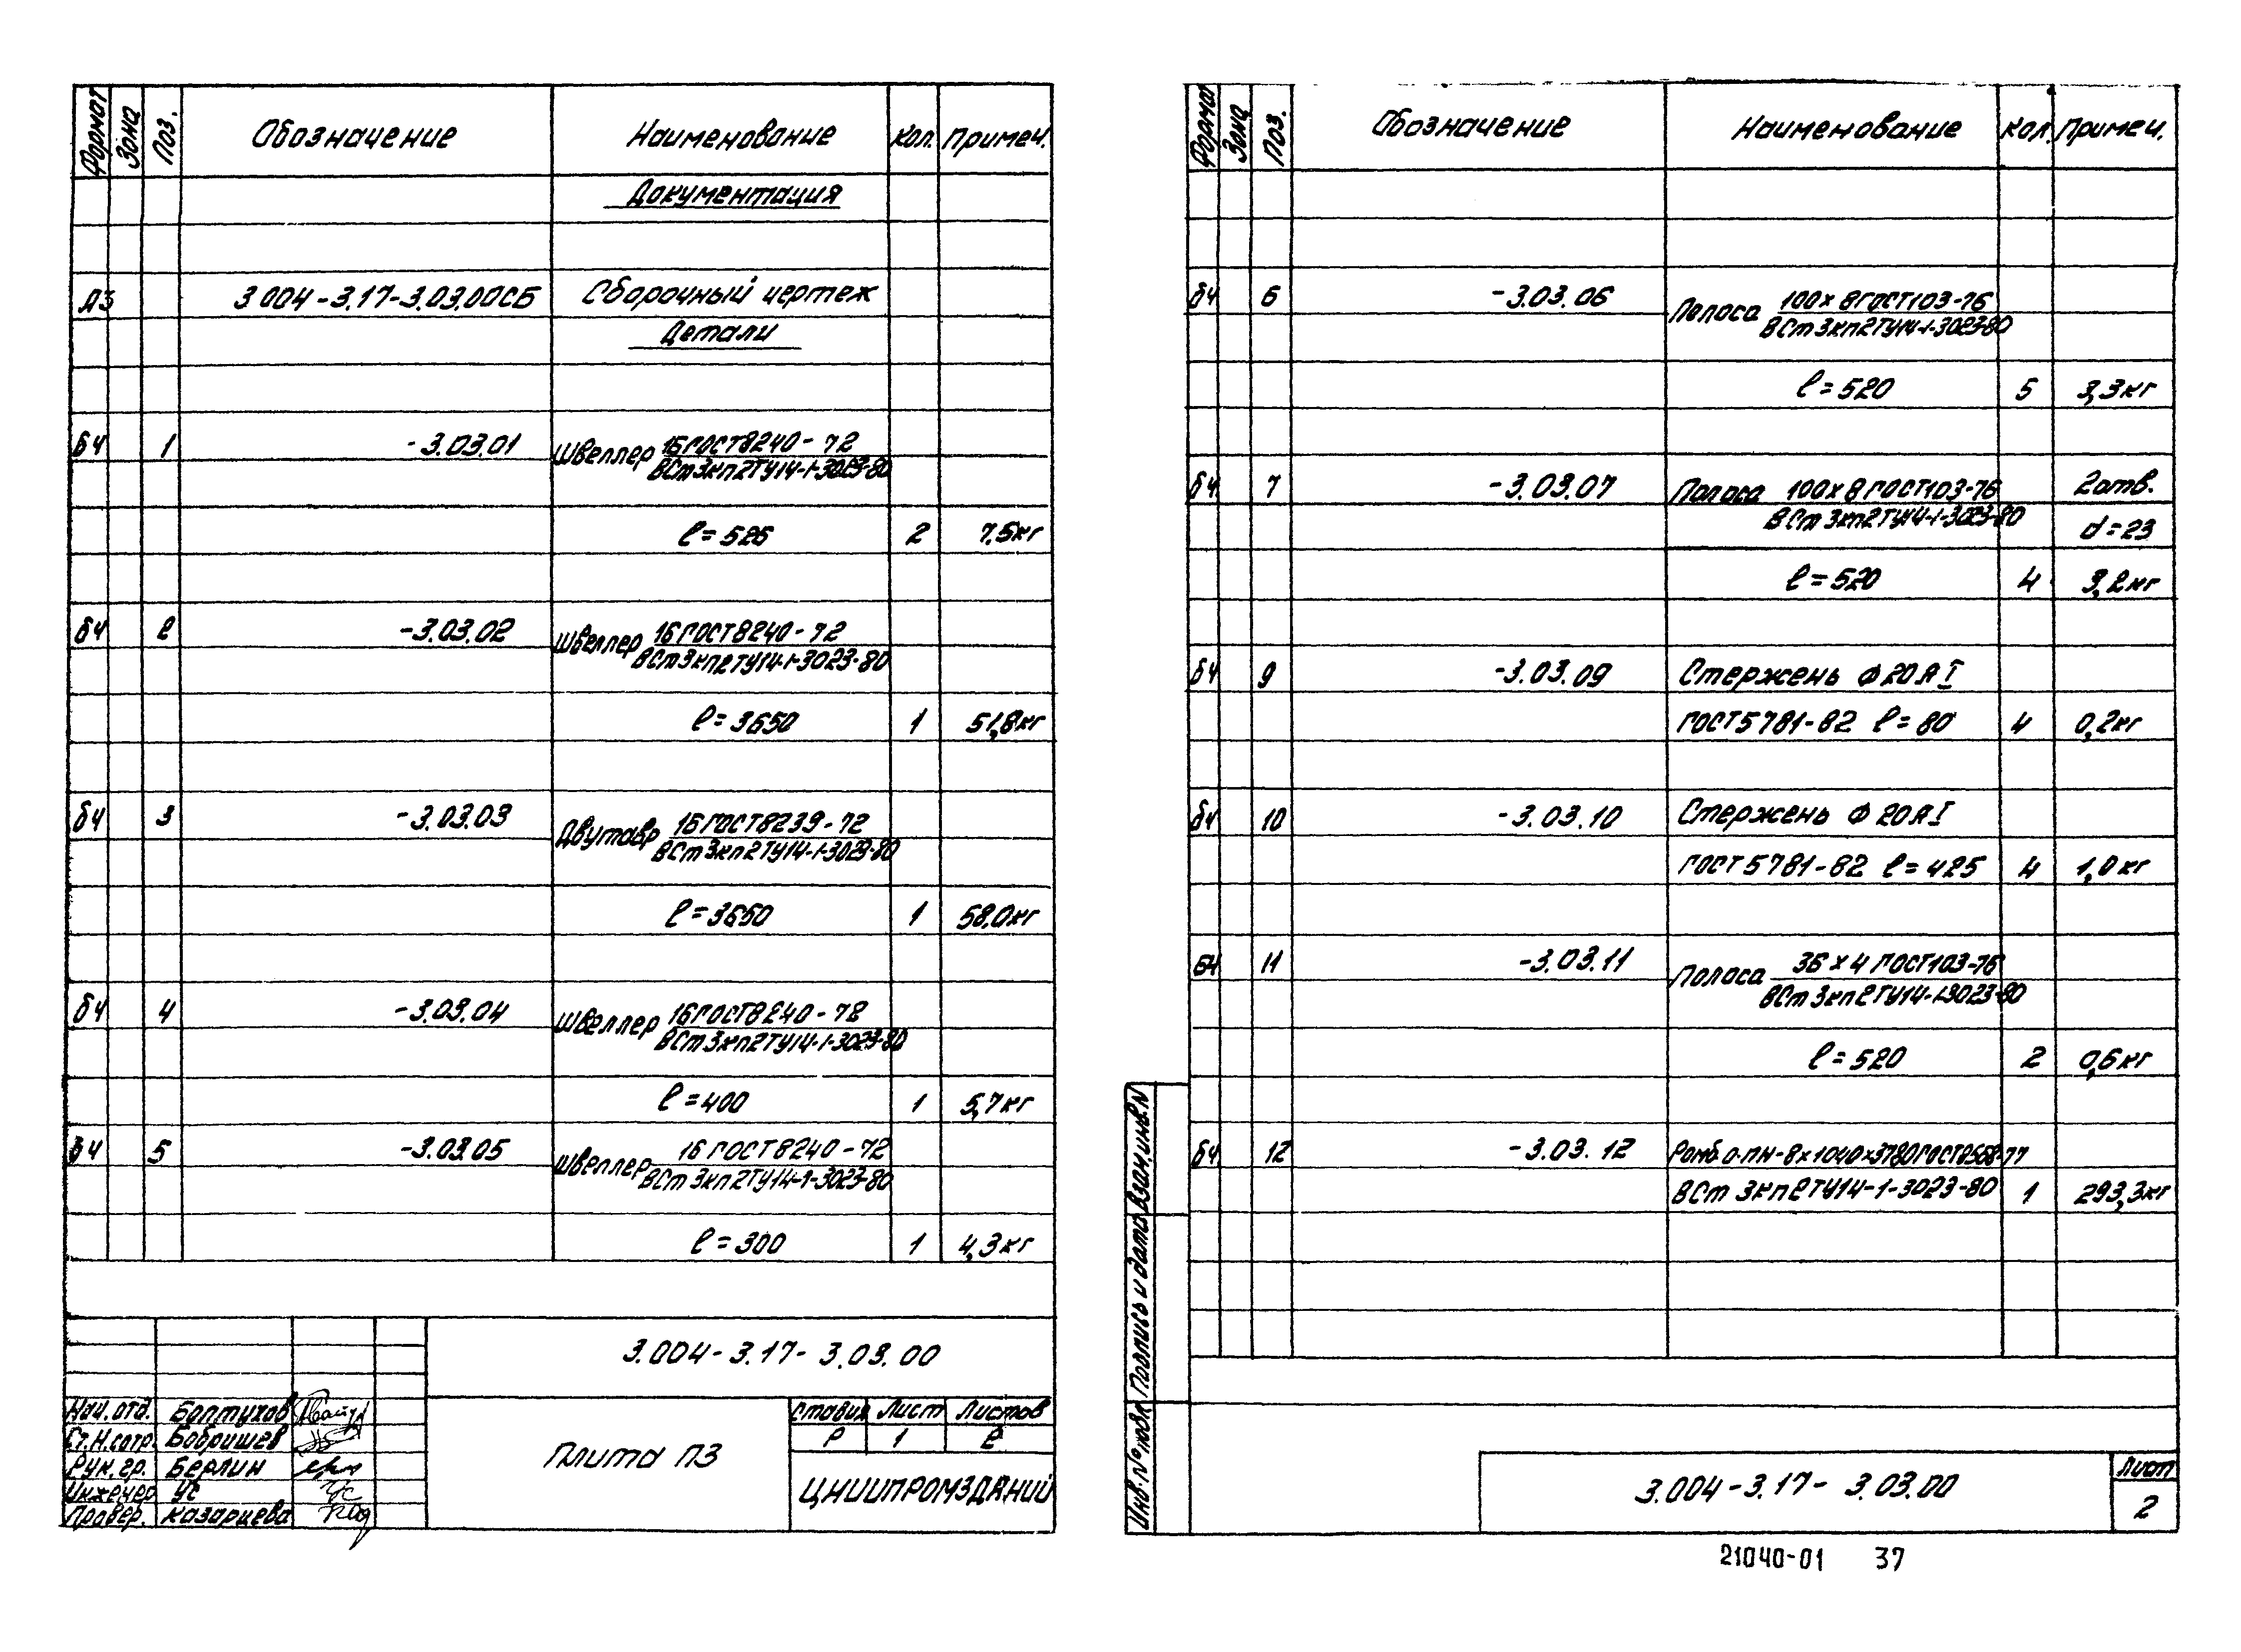 Формат Зона Поз. Обозначение Наименование Кол. Примеч.
Документация
А3 3.004-3.17-3.03.00СБ Сборочный чертеж
Детали
б4 1 -3.03.01 Швеллер 16 ГОСТ 8240-72
ВСт3кп2 ТУ14-1-3023-80
ℓ=525 2 7.5кг
б4 2 -3.03.02 Швеллер 16 ГОСТ 8240-72
ВСт3кп2 ТУ14-1-3023-80
ℓ=3650 1 51,8кг
б4 3 -3.03.03 Двутавр 16 ГОСТ 8239-72
ВСт3кп2 ТУ14-1-3023-80
ℓ=3650 1 58,0кг
б4 4 -3.03.04 Швеллер 16 ГОСТ 8240-72
ВСт3кп2 ТУ14-1-3023-80
ℓ=400 1 5,7кг
б4 5 -3.03.05 Швеллер 16 ГОСТ 8240-72
ВСт3кп2 ТУ14-1-3023-80
ℓ=300 1 4,3кг
3.004-3.17-3.03.00
Нач. отд. Балтухов
Ст. Н. сотр. Бобришев
Рук. гр. Берлин
Инженер Ус
Провер. Казариева
Плита П3
Стадия Лист Листов
Р 1 2
ЦНИИПРОМЗДАНИЙ
Формат Зона Поз. Обозначение Наименование Кол. Примеч.
б4 6 -3.03.06 Полоса 100×8 ГОСТ 103-76
ВСт3кп2 ТУ14-1-3023-80
ℓ=520 5 3,3кг
б4 7 -3.03.07 Полоса 100×8 ГОСТ 103-76 2 отв.
ВСт3кп2 ТУ14-1-3023-80 d=23
ℓ=520 4 3,2кг
б4 9 -3.03.09 Стержень Ф20АI
ГОСТ 5781-82 ℓ=80 4 0,2кг
б4 10 -3.03.10 Стержень Ф20АI
ГОСТ 5781-82 ℓ=425 4 1,0кг
б4 11 -3.03.11 Полоса 36×4 ГОСТ 103-76
ВСт3кп2 ТУ14-1-3023-80
ℓ=520 2 0,6кг
б4 12 -3.03.12 Ромб.О-ПН-8×1040×3780 ГОСТ 8568-77
ВСт3кп2 ТУ14-1-3023-80 1 293,3кг
Инв. № подл. Подпись и дата Взам. инв. N
3.004-3.17-3.03.00
Лист
2
21040-01 37